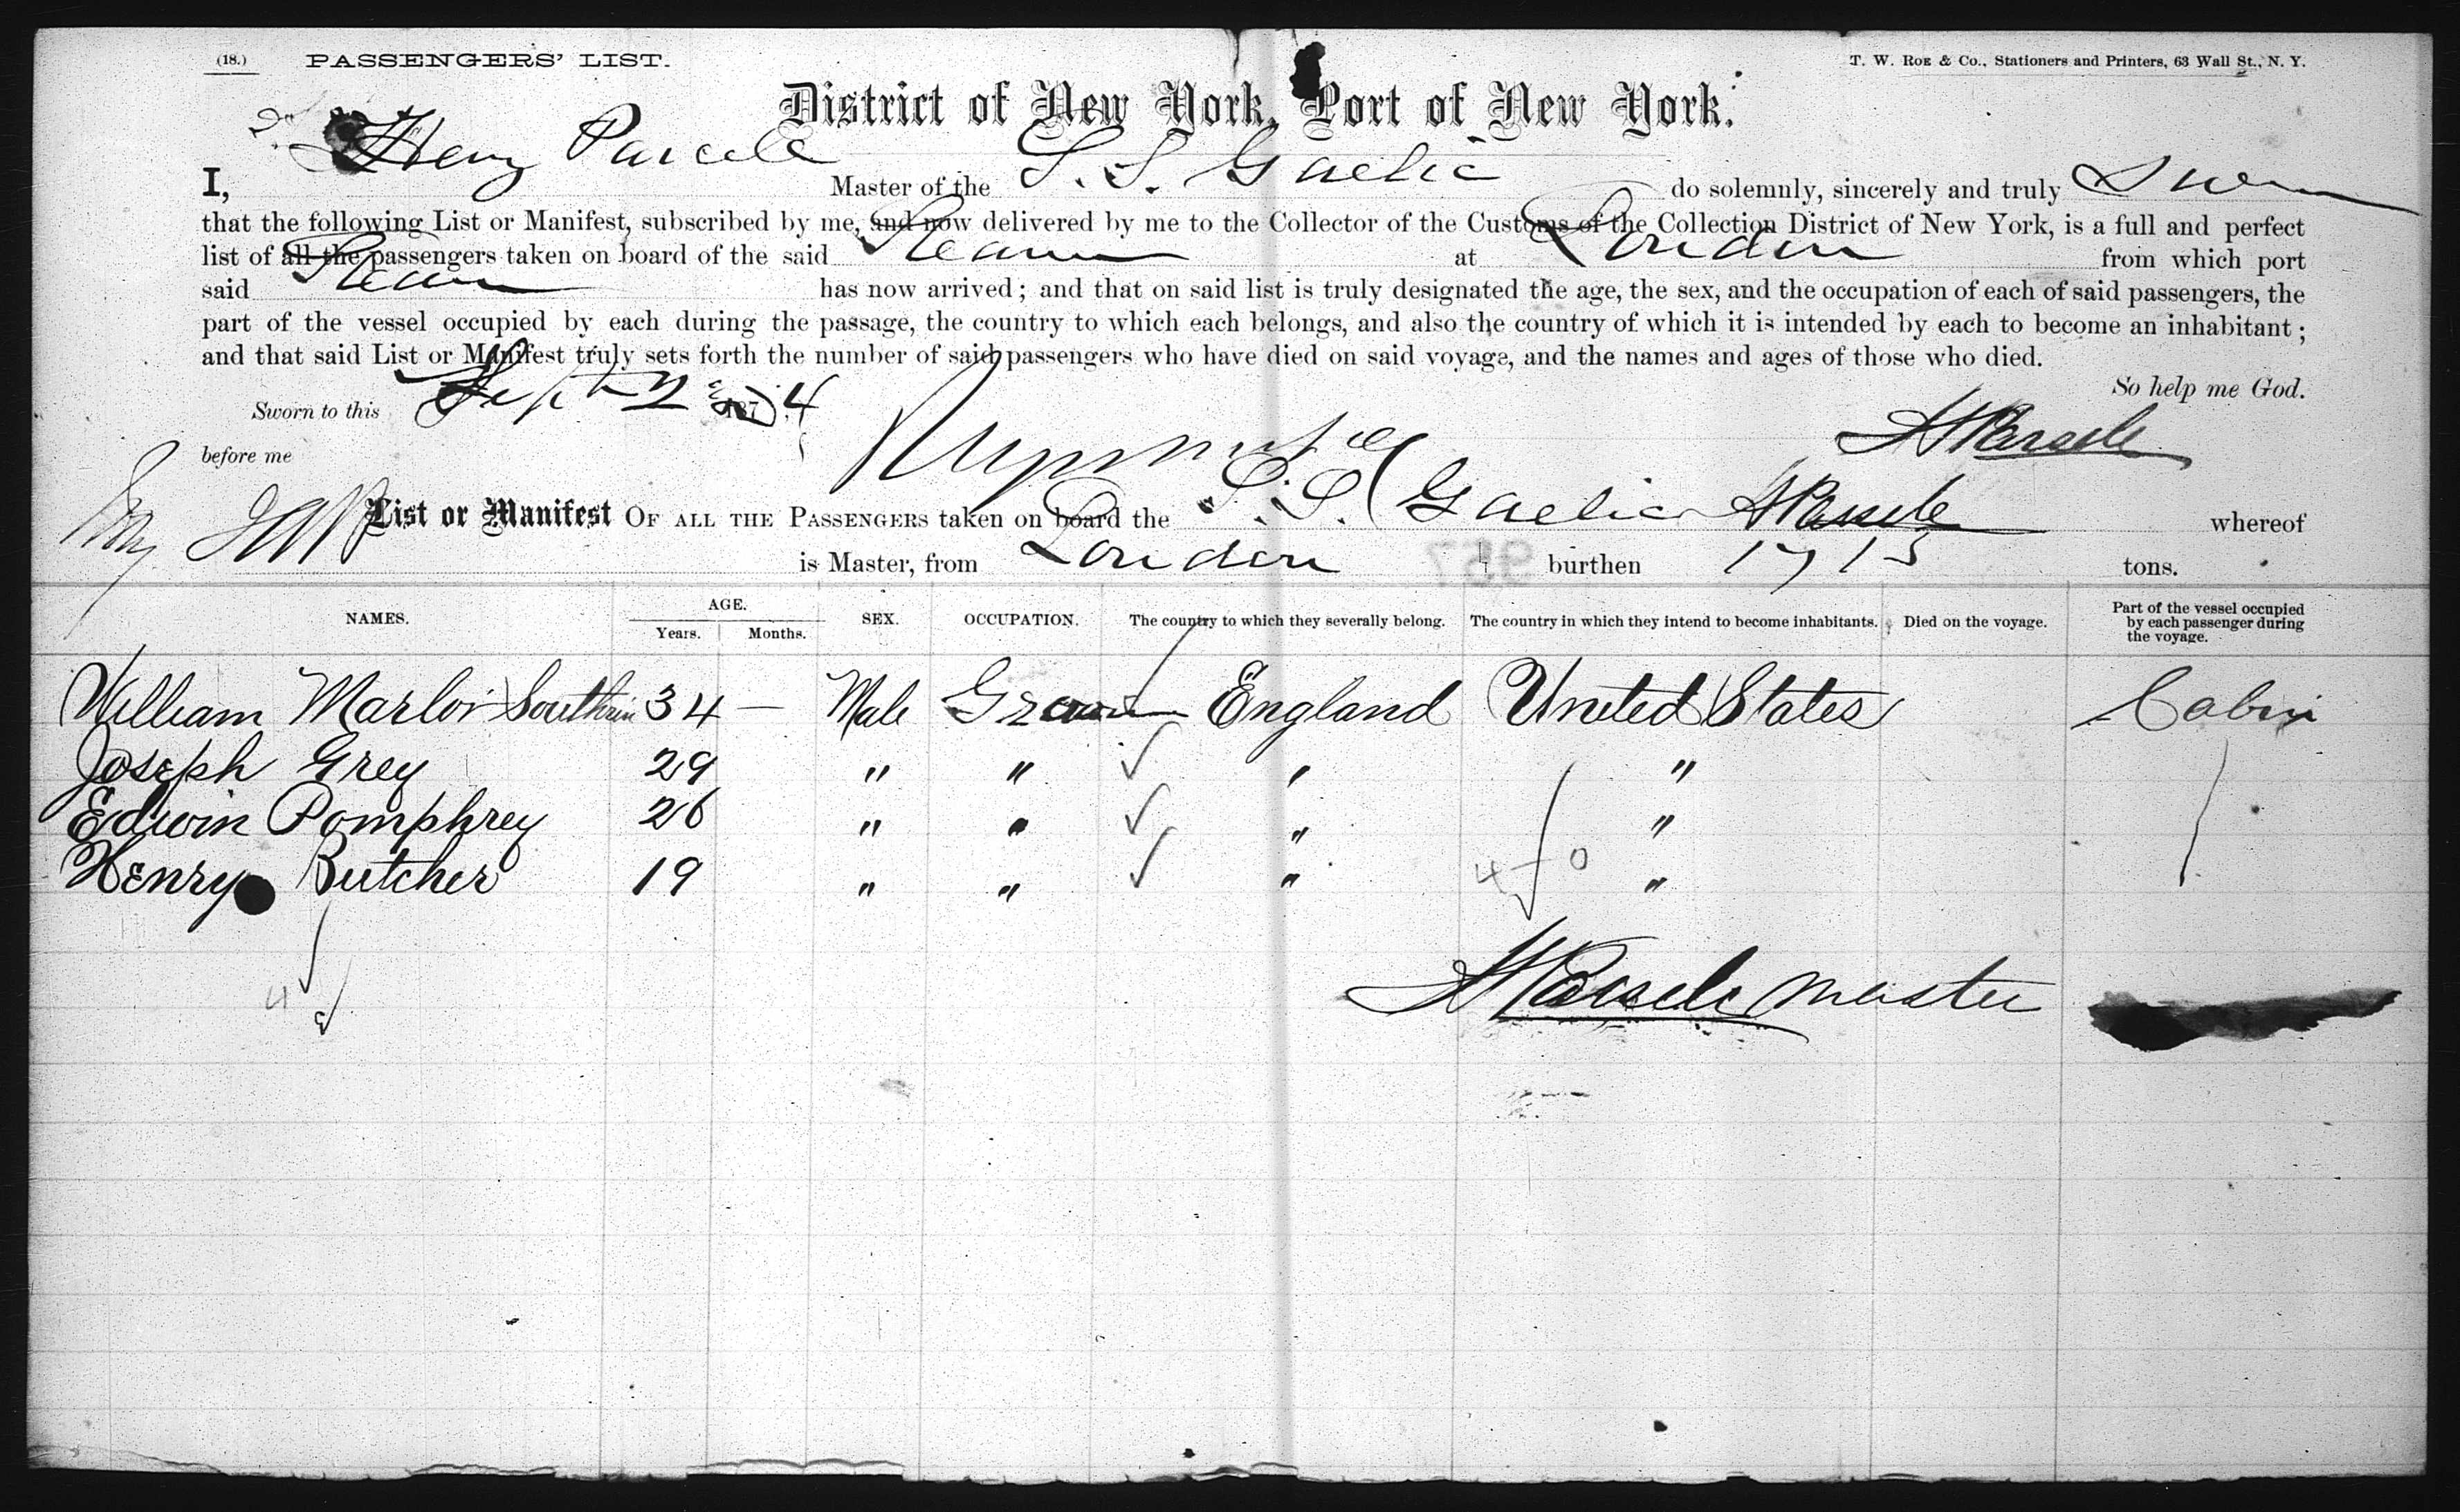 (18.) PASSENGERS' LIST. T. W. Roe & Co., Stationers and Printers, 63 Wall St., N. Y.
District of New York, Port of New York.
I, Henry Parsell Master of the S. S. Gaelic do solemnly, sincerely and truly Swear
that the following List or Manifest, subscribed by me, and now delivered by me to the Collector of the Customs of the Collection District of New York, is a full and perfect
list of all the passengers taken on board of the said Steamer at London from which port
said Steamer has now arrived; and that on said list is truly designated the age, the sex, and the occupation of each of said passengers, the
part of the vessel occupied by each during the passage, the country to which each belongs, and also the country of which it is intended by each to become an inhabitant;
and that said List or Manifest truly sets forth the number of said passengers who have died on said voyage, and the names and ages of those who died.
So help me God.
Sworn to this Sept 2 187 4
before me H Parsell
List or Manifest OF ALL THE PASSENGERS taken on board the S. S. Gaelic H Parsell whereof
is Master, from London burthen 1715 tons.
NAMES. AGE. Years. Months. SEX. OCCUPATION. The country to which they severally belong. The country in which they intend to become inhabitants. Died on the voyage. Part of the vessel occupied by each passenger during the voyage.
William 34 — Male England United States Cabin
Joseph Grey 29 " " " "
Edwin Pomphrey 26 " " " "
Henry Butcher 19 " " " "
4 - 0
4
H Parsell master